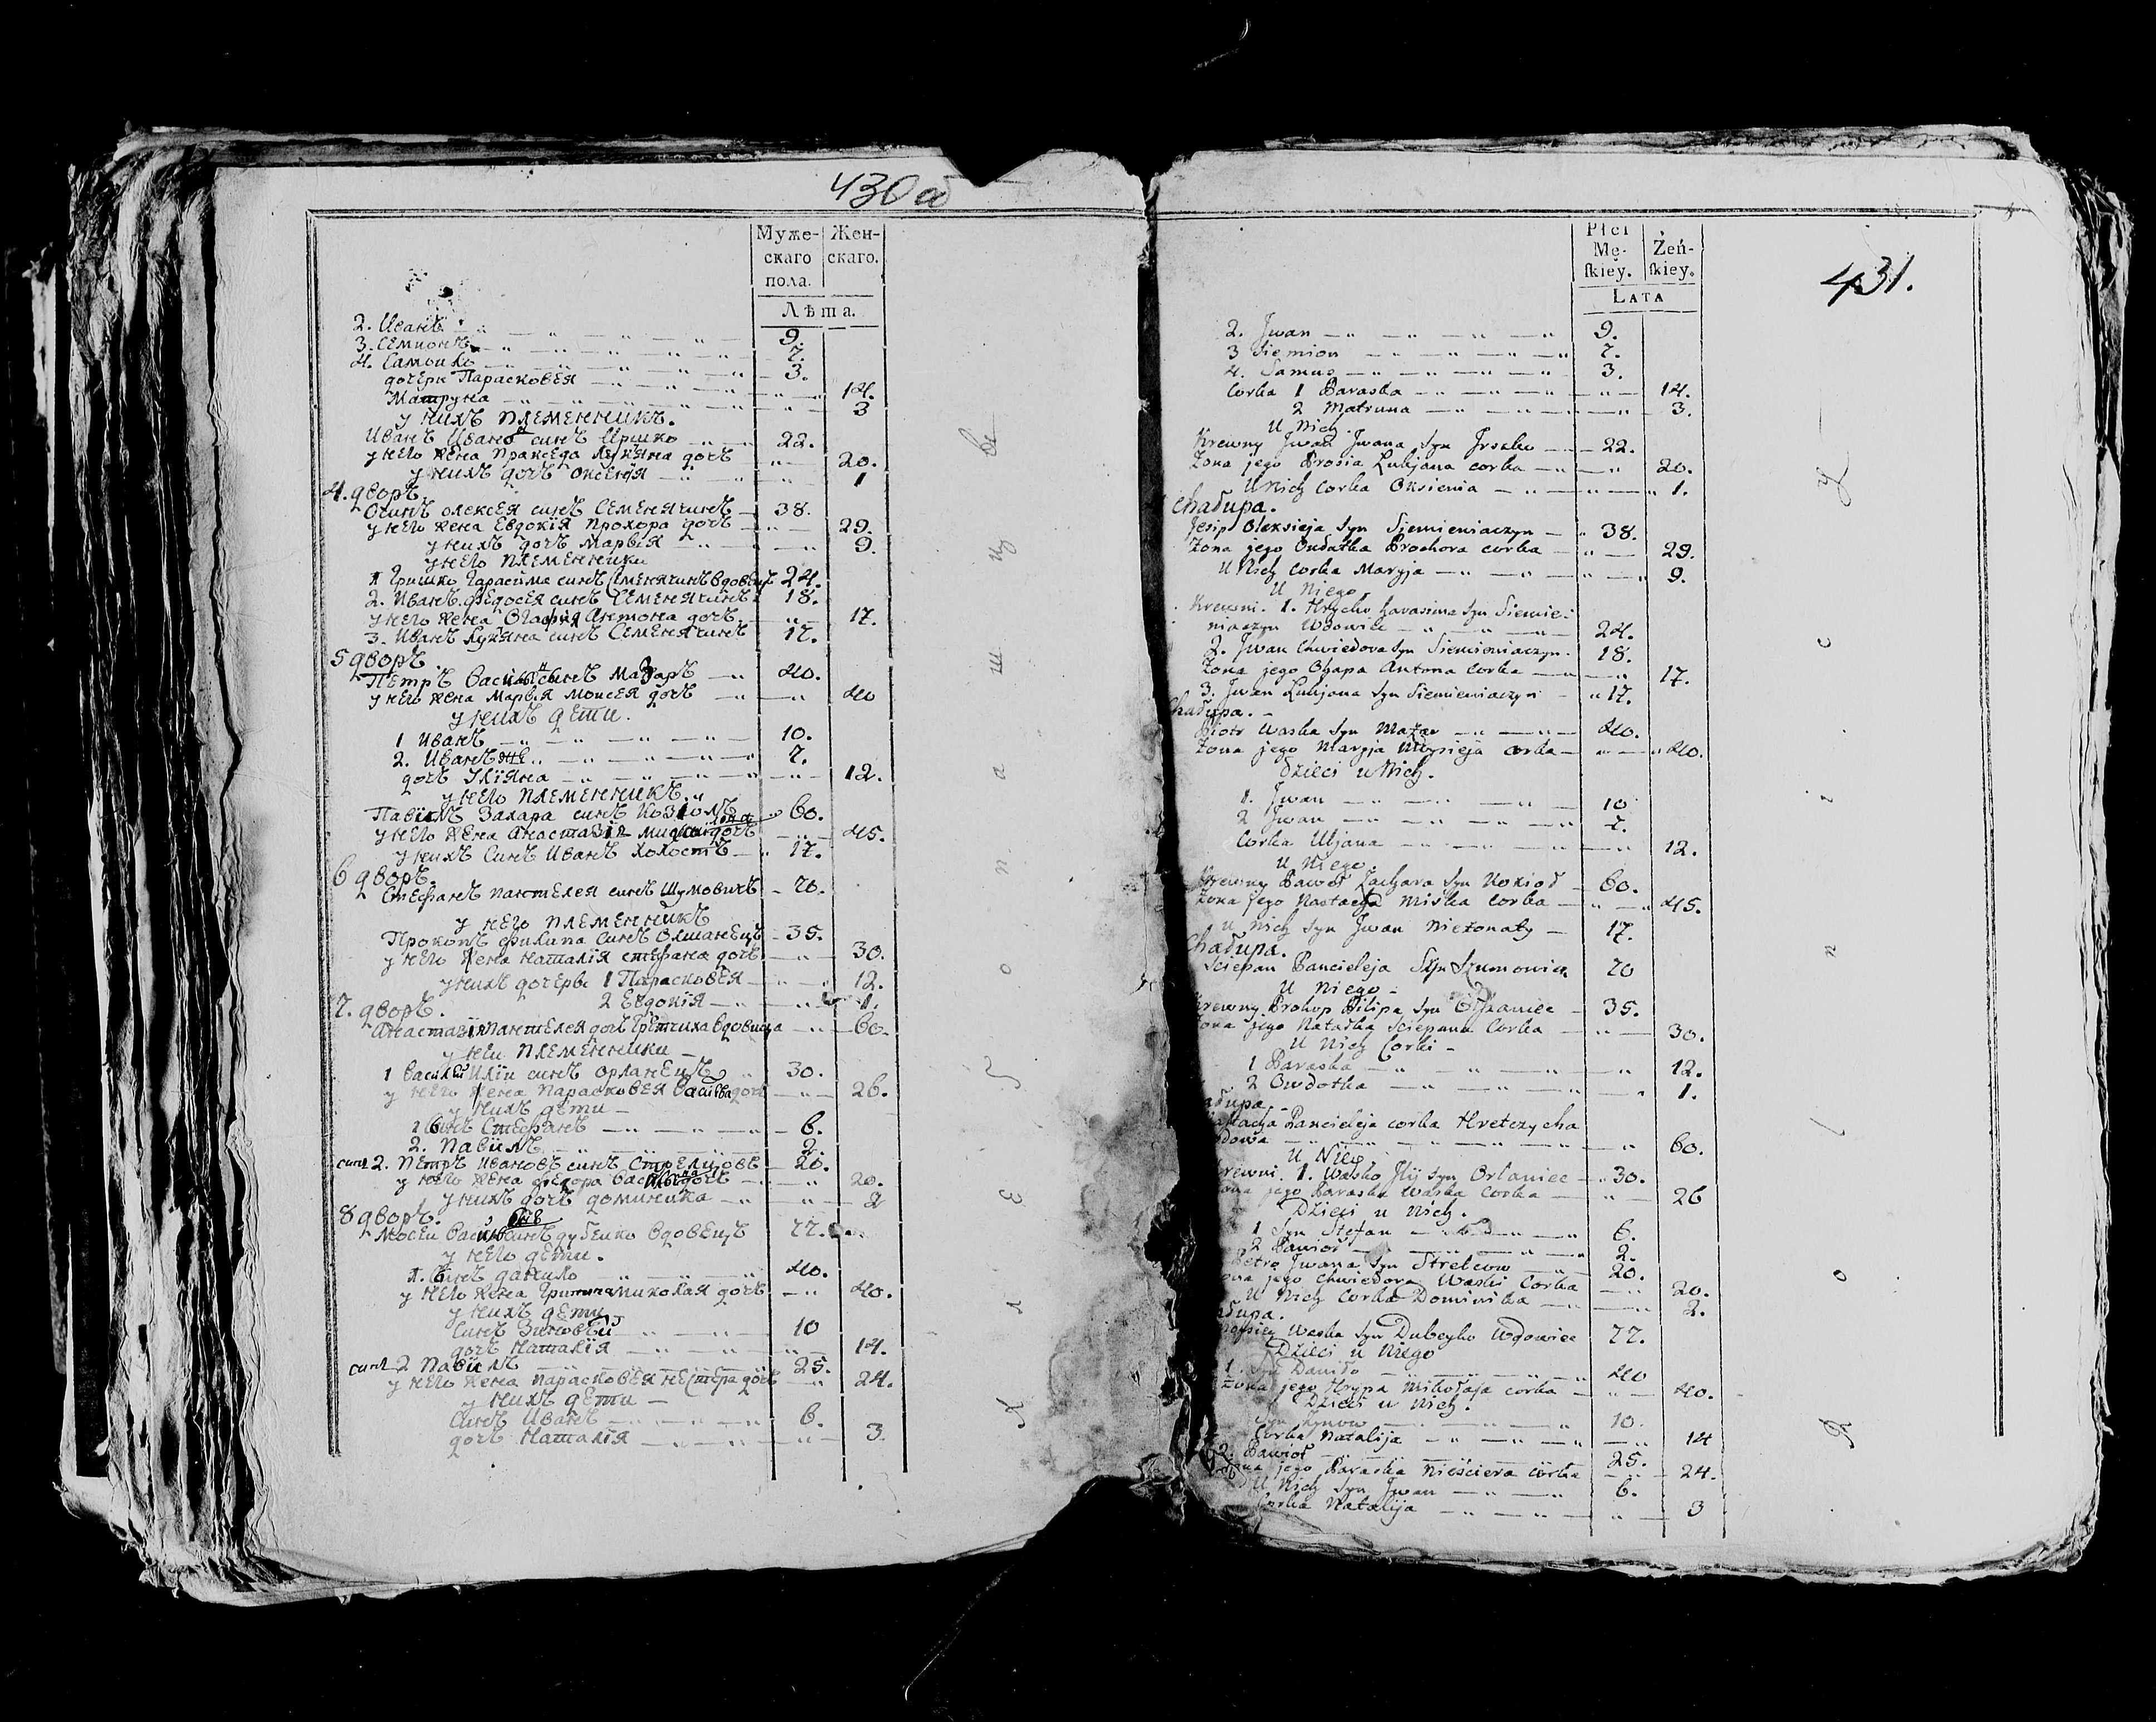 430 об
Муже-
скаго
пола.
Жен-
скаго.
Лѣта.
2. Иванъ 9.
3. Семионъ 7.
4. Самойло 3.
дочери Парасковея 14.
Матруна 3
у нихъ племенникъ.
Иванъ Ивана синъ Иршко 22.
у него жена Пракседа Лукяна дочь 20.
у нихъ дочь Оксения 1
4. дворъ.
Осипъ олексея синъ Семенячинъ 38.
у него жена Евдокїя Прохора дочь 29.
у нихъ дочь Марвія 9.
у него племенники
1 Гришко Гарасима синъ Семенячинъ вдовецъ 24.
2. Иванъ федосея синъ Семенячинъ 18.
у него жена Огафия Антона дочь 17.
3. Иванъ Лукяна синъ Семенячинъ 17.
5 дворъ.
Петръ Василия синъ Мазаръ 40.
у него жена Марвія Моисея дочь 40
у нихъ дети.
1 Иванъ 10.
2. Иванъ же 7.
дочь Уліяна 12.
у него племенникъ.
Павіолъ Захара синъ Козіолъ 60.
у него жена Анастазія дочь 45.
у нихъ Синъ Иванъ холостъ 17.
6 дворъ.
Стефанъ пантелея синъ Шумовичъ 70.
у него племенникъ
Прокопъ филипа синъ Олшанецъ 35.
у него жена Наталія стефана дочь 30.
у нихъ дочерве 1 Парасковея 12.
2 Евдокія 1.
7. дворъ.
Анастазія пантелея дочь Гретчиха вдовица 60.
у неи племенники
1 Василей Иліи синъ орланецъ 30.
у него жена Парасковея дочь 26.
у нихъ дети
1 Синъ Стефанъ 6.
2. Павіолъ 2.
синъ 2. Петръ Ивановъ синъ Стрелцовъ 20.
у него жена федора дочь 20.
у нихъ дочь доминика 2
8 дворъ.
Мосеи синъ дубеико вдовецъ 77.
у него дети.
1. Синъ данило 40.
у него жена Николая дочь 40.
у нихъ дети
Синъ Зиновей 10
дочь Наталія 14.
синъ 2 Павіолъ 25.
у него жена парасковея нестера дочь 24.
у нихъ дети
Синъ Иванъ 6.
дочь Наталія 3.
Płci
Mę-
ſkiey.
Żeń-
ſkiey.
LATA
431.
2. Jwan 9.
3 Siemion 7.
4. Samuś 3.
Corka 1 Paraska 14.
2 Matruna 3.
U Nich
Krewny Jwan Jwana Syn Jrszko 22.
Zona jego Prosia Lukjana corka 20.
U Nich Corka Oksienia 1.
Chałupa.
Jesip Oleksieja Syn Siemieniaczyn 38.
Zona jego Oudatka Prochora corka 29.
U Nich Corka Maryja 9.
U Niego
Krewni. 1. Hryćko Harasima Syn Siemie-
niaczyn Wdowiec 24.
2. Jwan Chwiedora Syn Siemieniaczyn. 18.
Zona jego Ohapa Antona Corka 17.
3. Jwan Lukjana Syn Siemieniaczyn 17.
Chałupa.
Piotr Waska Syn Mazar 40.
Zona jego Maryja Moysieja corka 40.
Dzieci u Nich.
1. Jwan 10
2 Jwan 7.
Corka Uljana 12.
U Niego.
Krewny Pawoł Zachara Syn Kozioł 60.
Zona jego Nastazya Miska Corka 45.
u Nich Syn Jwan Nieżonaty 17.
Chałupa.
Sciepan Pancieleja Syn Szumowicz 70
U Niego
Krewny Prokop Filipa Syn Olszaniec 35.
Zona jego Natałka Sciepana Corka 30.
U Nich Corki
1 Paraska 12.
2 Owdotka 1.
ałupa
astazja Pancieleja corka Hretczycha
dowa 60.
U Niey
rewni. 1. Wasko Jlij Syn Orlaniec 30.
ona jego Paraska Waska Corka 26
Dzieci u Nich.
1 Syn Stefan 6.
2 Pawioł 2.
Petro Jwana Syn Strelcow 20.
ona jego Chwiedora Waski Corka 20.
U Nich Corka Dominika 2.
ałupa.
Moysiey Waska Syn Dubeyko Wdowiec 77.
Dzieci u Niego
1. Syn Daniło 40
Zona jego Hrypa Mikołaja corka 40.
Dzieci u Nich.
Syn Zynow 10.
Corka Natalija 14
2. Pawioł 25.
Zona jego Paraska Nieściera corka 24.
U Nich Syn Jwan 6.
Corka Natalija 3